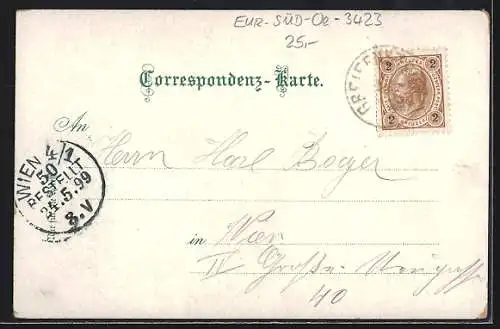 EUR-SÜD-Oe-3423
25,-
Correspondenz-Karte.
GREIFEN
2 2
2 2
An
Herrn Karl Boyer
WIEN 4/1
50
BESTELLT
24.5.99
8.V
in Wien
IV Große
40